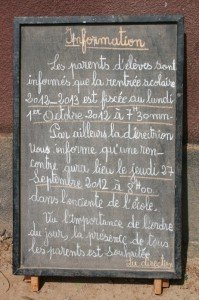 Information
Les parents d'élèves sont
informés que la rentrée scolaire
2012-2013 est fixée au lundi
1er Octobre 2012 à 7H30mn.
Par ailleurs la direction
Vous informe qu'une ren-
contre aura lieu le jeudi 27
Septembre 2012 à 8H00
dans l'enceinte de l'école.
Vu l'importance de l'ordre
du jour, la présence de tous
les parents est souhaitée
La direction